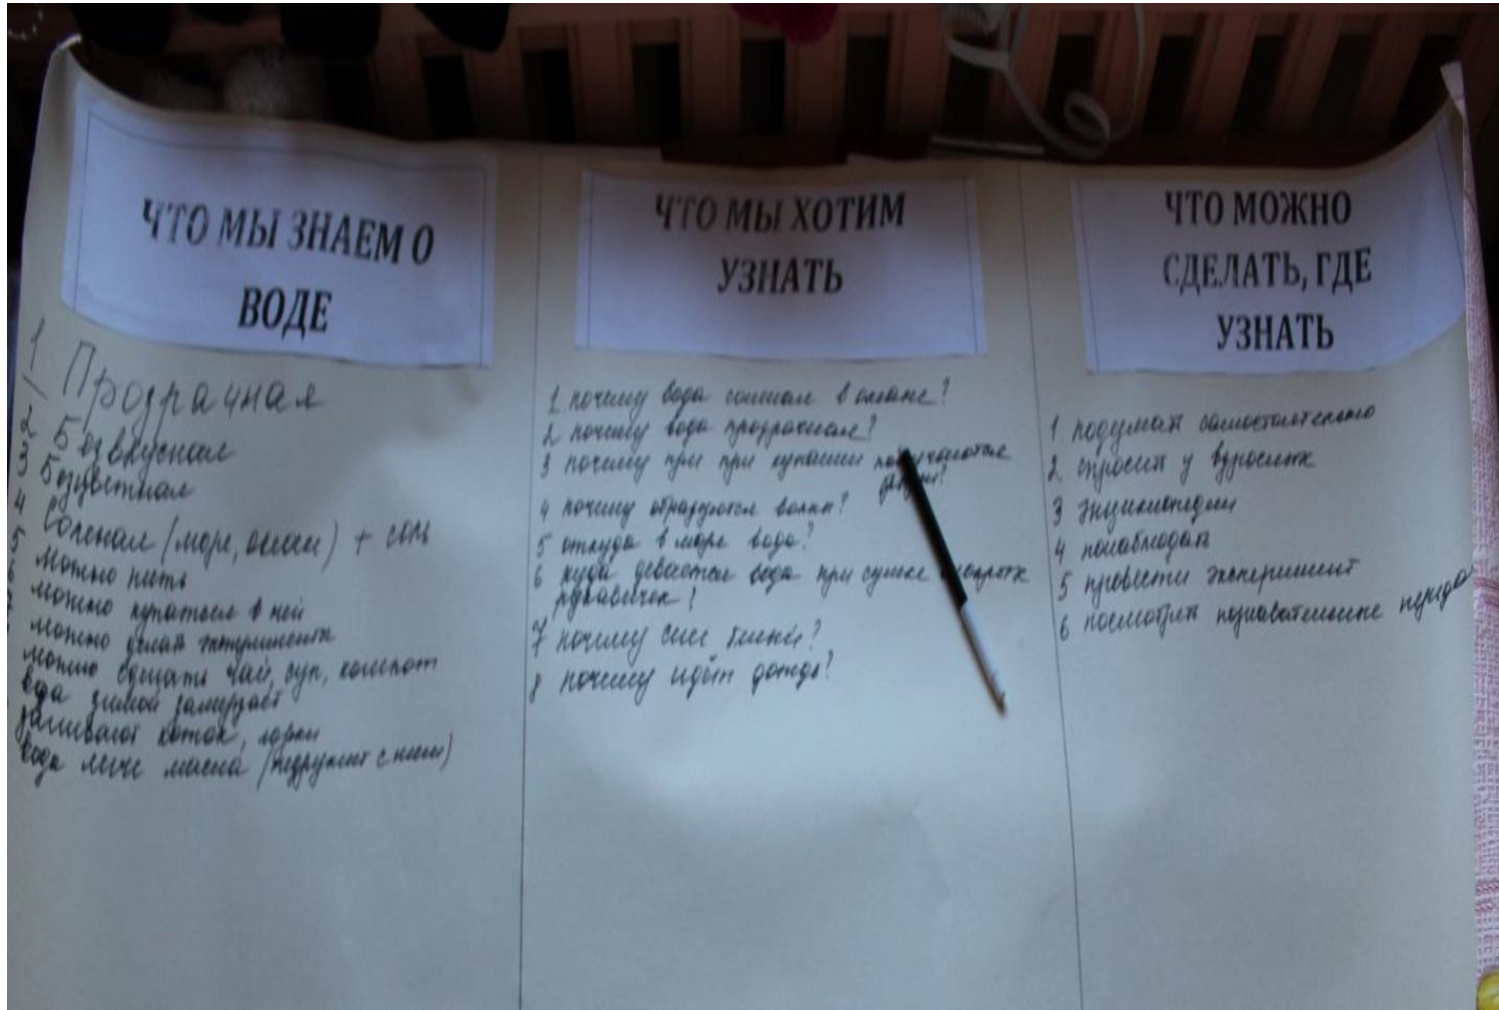 ЧТО МЫ ЗНАЕМ О
ВОДЕ
1 Прозрачная
2 Безвкусная
3 Безцветная
4 Соленая (море, океан) + соль
5 можно пить
6 можно купаться в ней
можно делать эксперименты
можно сделать чай, суп, компот
вода зимой замерзает
заливают каток, горки
вода легче масла (не дружит с ним)
ЧТО МЫ ХОТИМ
УЗНАТЬ
1 почему вода соленая в океане?
2 почему вода прозрачная?
3 почему при при купании получаются
4 почему образуются волны?
5 откуда в море вода?
6 куда девается вода при сушке мокрых
рукавичек?
7 почему снег белый?
8 почему идёт дождь?
ЧТО МОЖНО
СДЕЛАТЬ, ГДЕ
УЗНАТЬ
1 подумать самостоятельно
2 спросить у взрослых
3 энциклопедии
4 понаблюдать
5 провести эксперимент
6 посмотреть познавательные передачи